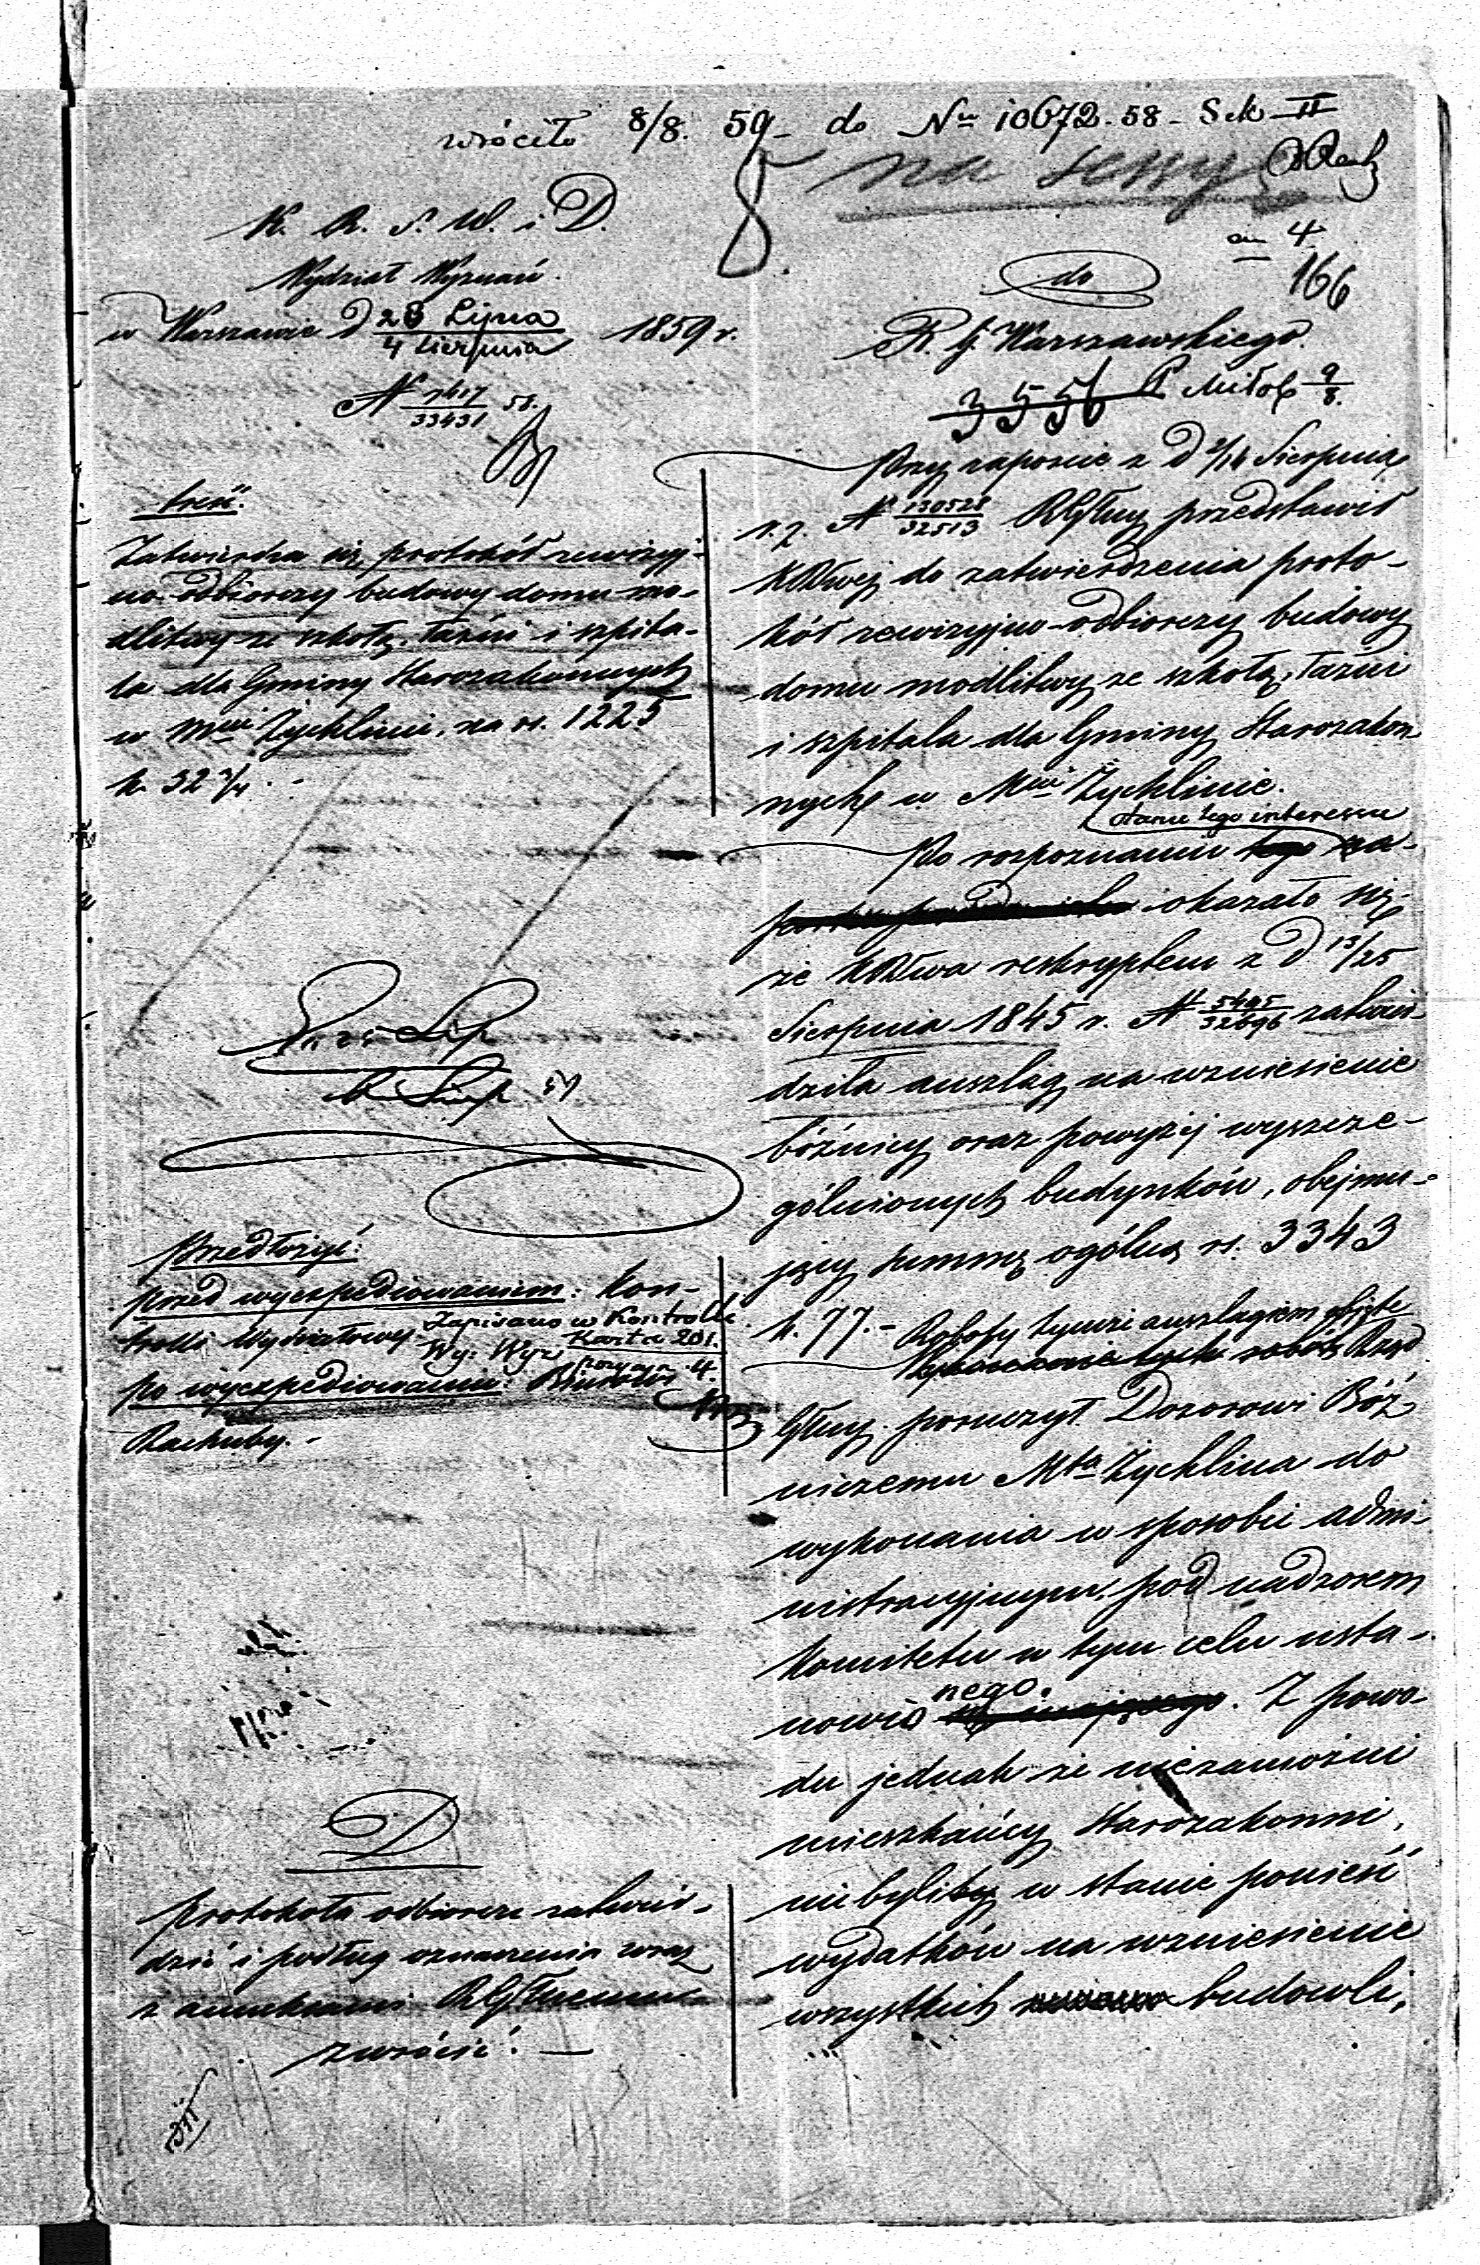 wróciło 8/8. 59 - do Nru 10672. 58 - Sek - II
na sessyę
8.
K. R. S. W. i D.
Wydział Wyznań.
w Warszawie d 23 Lipca / 4 Sierpnia 1859 r.
N 7417/33431 58.
treść.
Zatwierdza się protokół rewizyj-
no odbiorczy budowy domu mo-
dlitwy ze szkołą, łaźni i szpita-
la dla Gminy Starozakonnych
w Mcie Żychlinie, na rs. 1225
k. 32 3/4. -
Przedłożyć:
przed wyexpediowaniem: Kon-
trolli Wydziałowej
Zapisano w Kontrolle
Wy: Wyz Karta 201.
pozycya 4.
po wyexpediowaniu: Biurowi
Rachuby. -
D
protokoła odbiorcze zatwier-
dzić i podług oznaczenia wraz
z annexami RGłnemu
zwrócić. —
4
166
do
R. G. Warszawskiego.
3556
Przy raporcie z d 2/14 Sierpnia
r. z. N 130528/32513 RGłlny przedstawił
KRłwej do zatwierdzenia proto-
kół rewizyjno-odbiorczy budowy
domu modlitwy ze szkołą, łaźni
i szpitala dla Gminy Starozakon
nych w Mcie Żychlinie.
stanu tego interessu
Po rozpoznaniu
okazało się,
że KRłwa reskryptem z d 13/25
Sierpnia 1845 r. N 5495/32696 zatwier-
dziła anszlag na wzniesienie
bóżnicy oraz powyżej wyszcze-
gólnionych budynków, obejmu-
jący summę ogólną rs. 3343
k. 77. - Roboty tymże anszlagiem objęte
Wykonanie tych robót Rząd
Głny poruczył Dozorowi Bóż
niczemu Mta Żychlina do
wykonania w sposobie admi-
nistracyjnym, pod nadzorem
Komitetu w tym celu usta-
nowio nego. Z powo-
du jednak że niezamożni
mieszkańcy Starozakonni,
nie byliby w stanie ponieść
wydatków na wzniesienie
wszystkich budowli,